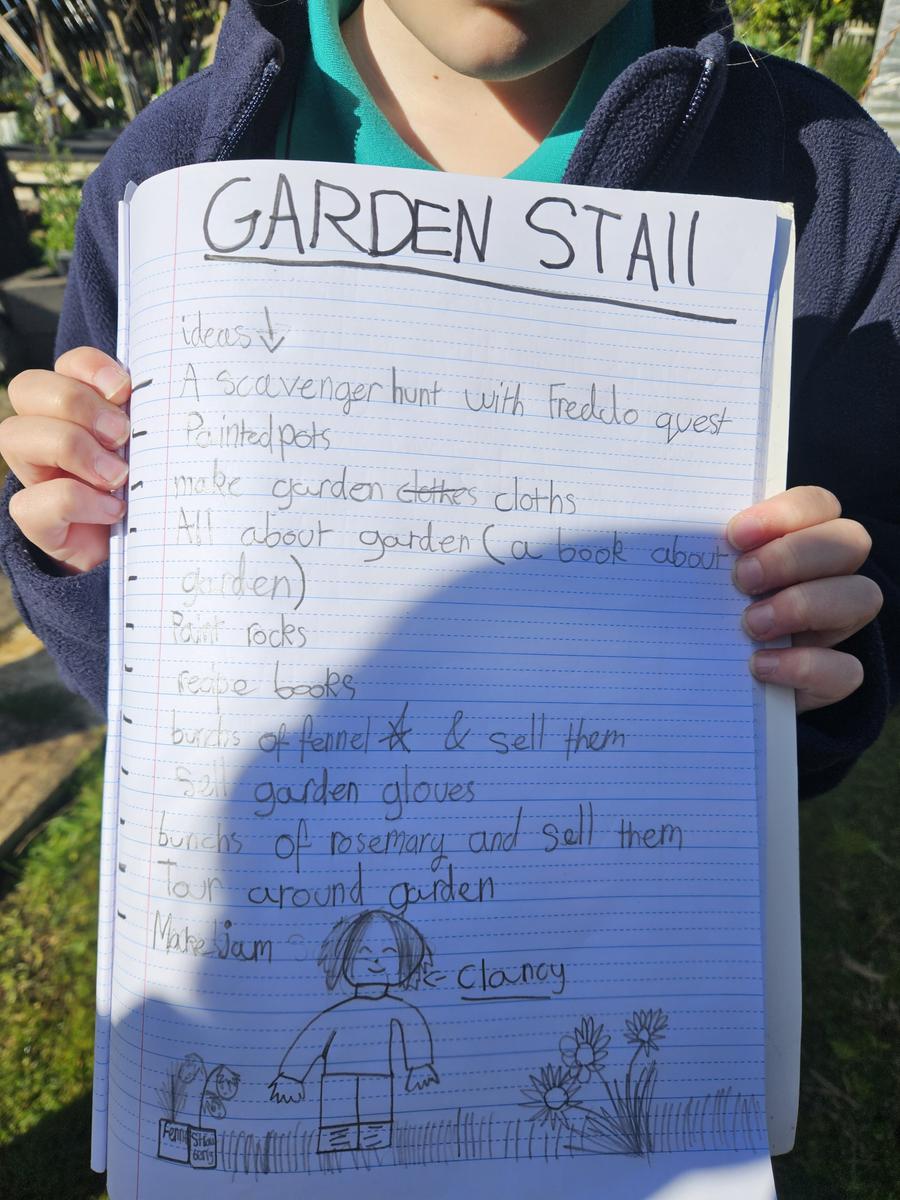 GARDEN STAll
ideas↓
- A scavenger hunt with Freddo quest
- Painted pots
- make garden ~~clothes~~ cloths
- All about garden (a book about
- garden)
- Paint rocks
- recipe books
- bunchs of fennel ☆ & sell them
- Sell garden gloves
- bunchs of rosemary and sell them
- Tour around garden
- Make jam
← Clancy